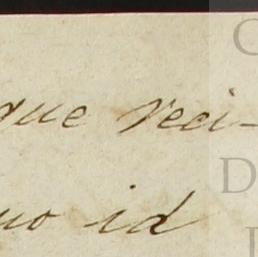 que reci-
uo id